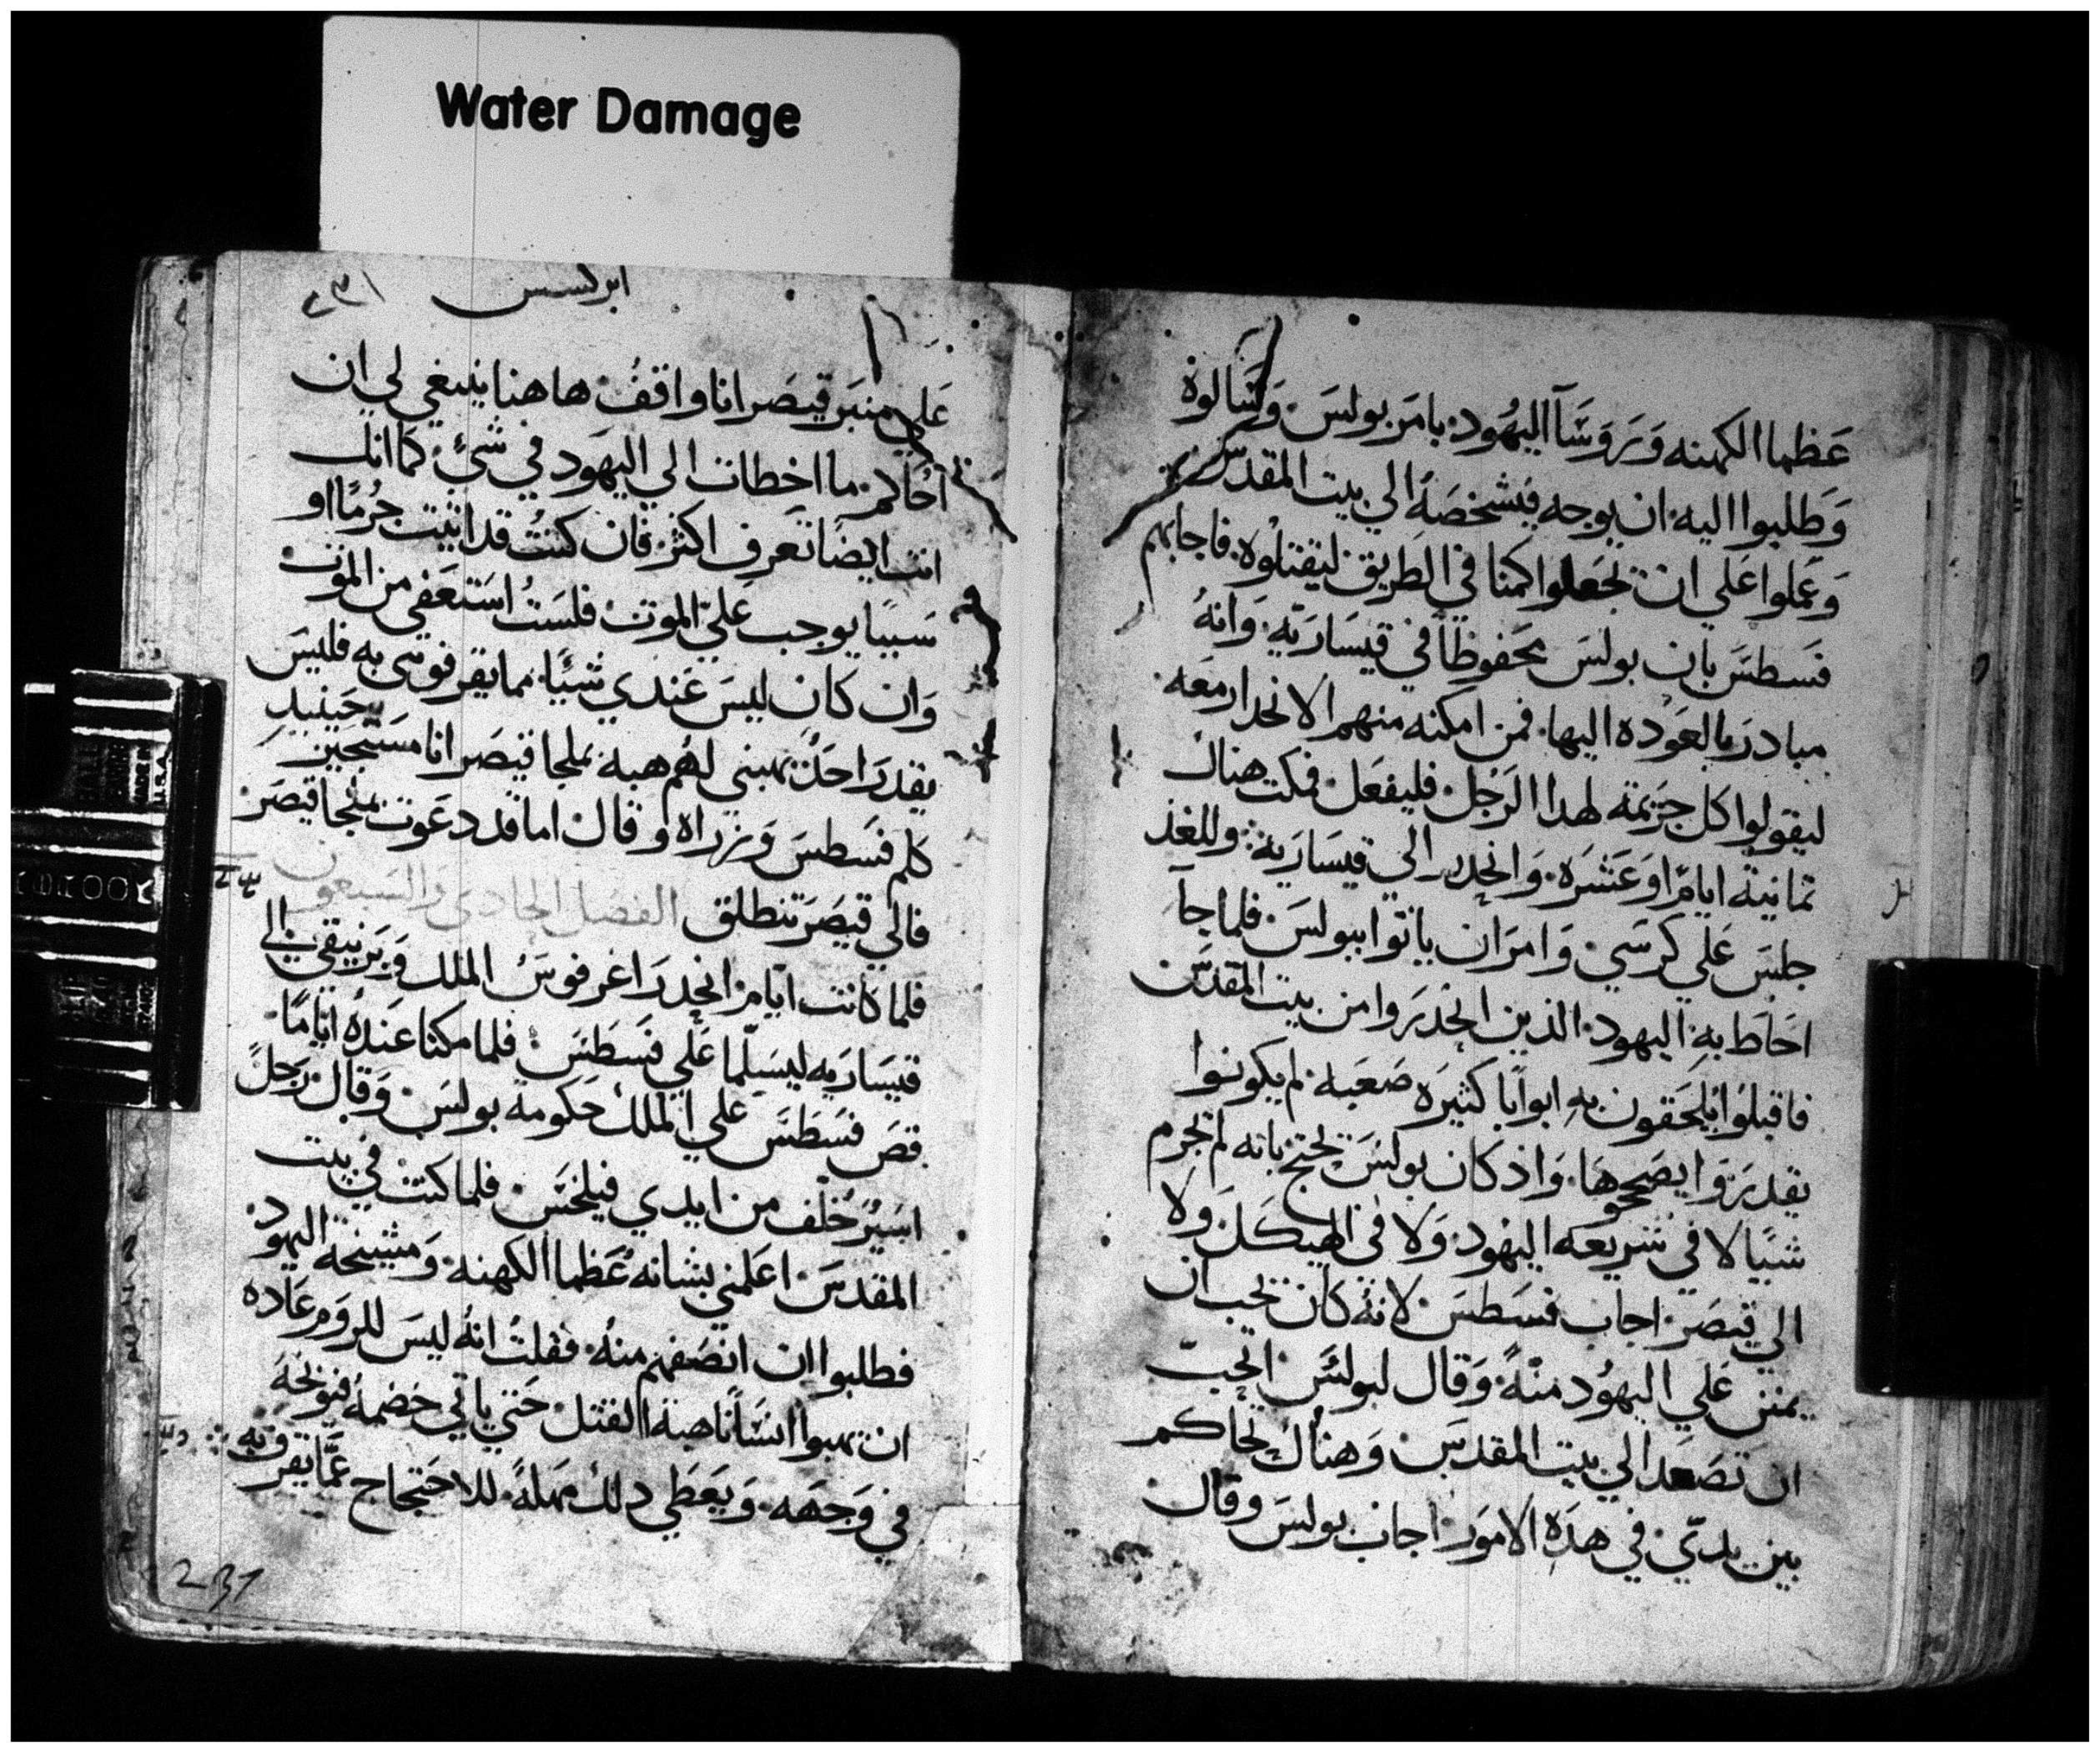 Water Damage
عَظما الكهنه وَرَوَسَآ اليهُود. بامَر بولسَ. وَسَالوهُ
وَطلبوا اليه. ان يوجه فيشخصَهُ الي بيت المقدسَ
وَعَملوا عَلي ان يجَعلوا كمنا في الطريق ليقتلوُه. فاجابهم
فسَطسَ بان بولسَ محَفوظاً في قيسَاريّه. وَانهُ
مبادرَ بالعَوده اليها. فمن امكنه منهم الانحدار معَه.
ليقولوا كل جرَيمته لهدا الرَجُل. فليفعَل. فمكت هناك
تمانية ايامًا وعَشرَه. وَانحدر الي قيسَاريه. وللغذ
جلسَ عَلي كرسَي. وَامرَان ياتوا ببولسَ. فلما جآ
احَاط بهِ اليهود. الذين انحدرَوا من بيت المقدسَ
فاقبلوُا يلحَقون بهِ ابواباً كثيرَه صَعَبه. لم يكونوا
يقدرَوا يصَححوهَا. وَاذ كان بولسَ يحتج بانه لم يجرم
شيًا لا في شريعه اليهُود. وَلا في الهيكَل وَلا
الي قيصَر. اجاب فسَطسَ. لانهُ كان يحب ان
يمنن عَلي اليهُود منهً. وَقال لبولسَ. اتحبّ
ان تصَعَد الي بيت المقدسَ. وَهناك تحاكم
بين يديّ. في هذه الامَور. اجاب بولسَ وقال
ابركسس ٢٣١
عَلي منبَر قيصَر انا واقفُ. ها هنا ينبغي لي ان
احُاكم. ما اخطات الي اليهَود في شيُ. كمَا انك
انت ايضًا تعَرف اكثر. فان كنتُ قد اتيت جُرمًا او
سَببًا يوجب عَليّ الموت. فلسَتُ اسَتعَفي من الموت.
وَان كان ليسَ عَندي شيًا. مما يقرفوني به فليسَ
يقدرَ احَدٌ يهبني لهُم هبه. بملجا قيصَر انا مسَتجير. حَينيدٍ
كلم فسَطسَ وَزراه وَقال. اما قد دعَوت بملجا قيصَر.
فالي قيصَرَ تنطلق الفصَل الحَادي وَالسَبعون
فلما كانت ايّام. انحدرَ اغرفوسَ الملك وَبرَنيقي الي
قيسَاريه ليسَلّما عَلي فسَطسَ. فلما مكثا عَندهُ ايّامًا.
قصَ فسَطسَ عَلي الملك حَكومة بولسَ. وَقال. رَجلً
اسَيرُ خُلّف من ايدي فيلخسَ. فلما كنتُ في بيت
المقدسَ. اعَلمني بشانه عُظما الكهنه. وَمشيخة اليهود.
فطلبوا ان انصَفهم منهُ. فقلتُ انهُ ليسَ للروَم عَاده
ان يهبوا انسَانا هبة القتل. حَتي ياتي خصَمهُ فيوبخهُ
في وَجهَه. وَيعَطي دلك مهَلهً. للاحَتجاج عَمّا يقرف به
231